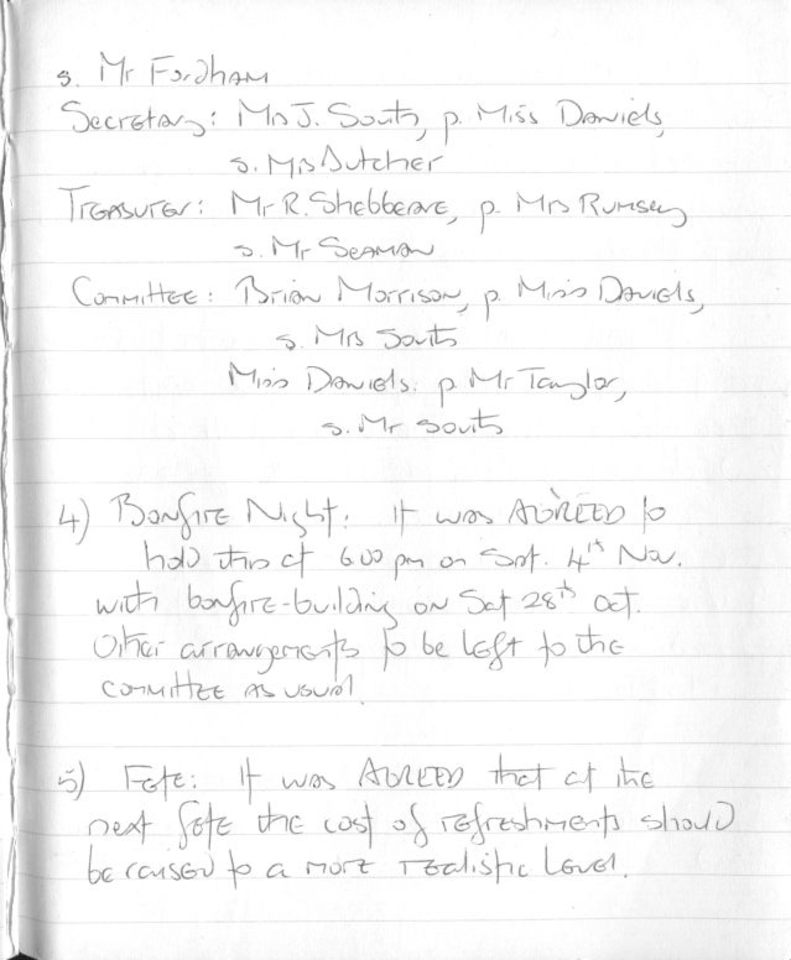 s. Mr Fordham
Secretary: Mrs J. South, p. Miss Daniels,
s. Mrs Butcher
Treasurer: Mr R. Shebbeare, p. Mrs Rumsey
s. Mr Seaman
Committee: Brian Morrison, p. Miss Daniels,
s. Mrs South
Miss Daniels: p. Mr Taylor,
s. Mr South
4) Bonfire Night: It was AGREED to
hold this at 6.00 pm on Sat. 4th Nov.
with bonfire-building on Sat 28th Oct.
Other arrangements to be left to the
committee as usual.
5) Fete: It was AGREED that at the
next fete the cost of refreshments should
be raised to a more realistic level.